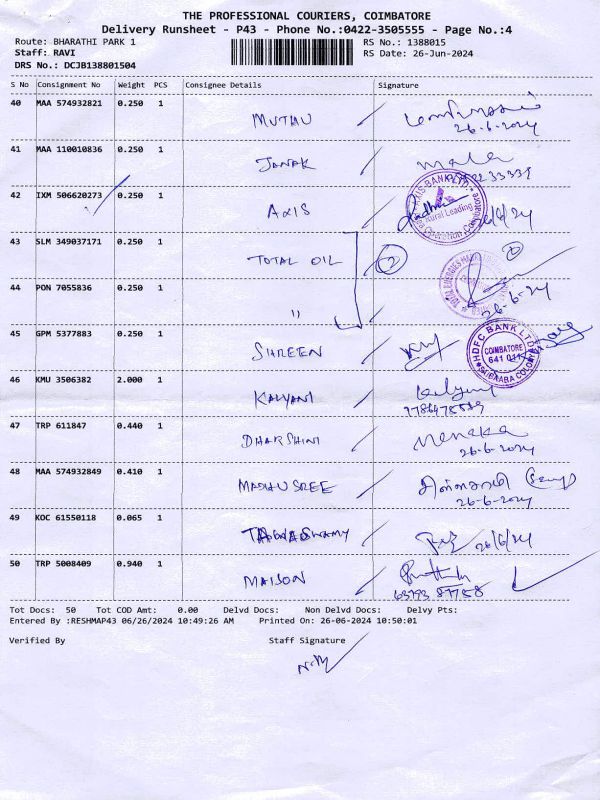 THE PROFESSIONAL COURIERS, COIMBATORE
Delivery Runsheet - P43 - Phone No.:0422-3505555 - Page No.:4
Route: BHARATHI PARK 1 RS No.: 1388015
Staff: RAVI RS Date: 26-Jun-2024
DRS No.: DCJB138801504
S No Consignment No Weight PCS Consignee Details Signature
40 MAA 574932821 0.250 1 MUTHU
26-6-2024
41 MAA 110010836 0.250 1 JANAK Mala
42 IXM 506620273 0.250 1 AXIS
AXIS BANK LTD.
Rural Lending
Coimbatore
43 SLM 349037171 0.250 1 TOTAL OIL 2 2
44 PON 7055836 0.250 1 " 26-6-24
45 GPM 5377883 0.250 1 SHREEN
HDFC BANK LTD
COIMBATORE
46 KMU 3506382 2.000 1 KALYANI
47 TRP 611847 0.440 1 DHARSHINI Menaka
26-6-2024
48 MAA 574932849 0.410 1 MADHUSREE
26-6-2024
49 KOC 61550118 0.065 1 26/6/24
50 TRP 5008409 0.940 1 MAISON
Tot Docs: 50 Tot COD Amt: 0.00 Delvd Docs: Non Delvd Docs: Delvy Pts:
Entered By :RESHMAP43 06/26/2024 10:49:26 AM Printed On: 26-06-2024 10:50:01
Verified By Staff Signature